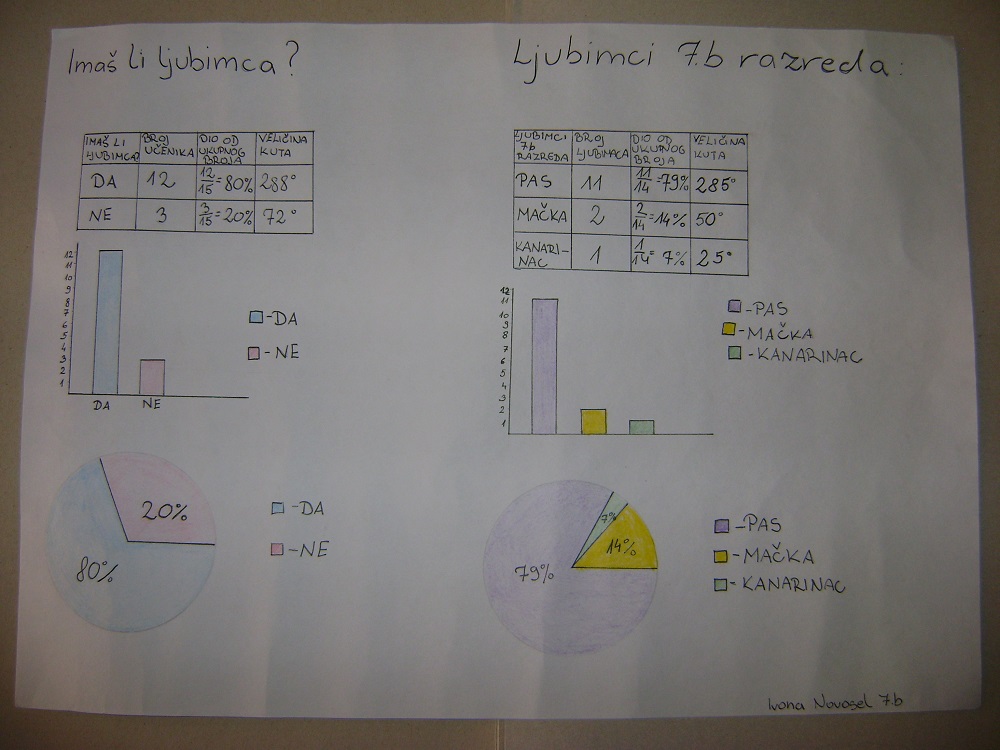 Imaš li ljubimca?
IMAŠ LI LJUBIMCA? BROJ UČENIKA DIO OD UKUPNOG BROJA VELIČINA KUTA
DA 12 12/15=80% 288°
NE 3 3/15=20% 72°
12
11
10
9
8
7
6
5
4
3
2
1
DA NE
-DA
-NE
20%
80%
-DA
-NE
Ljubimci 7.b razreda:
LJUBIMCI 7b RAZREDA BROJ LJUBIMACA DIO OD UKUPNOG BROJA VELIČINA KUTA
PAS 11 11/14=79% 285°
MAČKA 2 2/14=14% 50°
KANARI-
NAC 1 1/14= 7% 25°
12
11
10
9
8
7
6
5
4
3
2
1
-PAS
-MAČKA
-KANARINAC
7%
14%
79%
-PAS
-MAČKA
-KANARINAC
Ivona Novosel 7.b